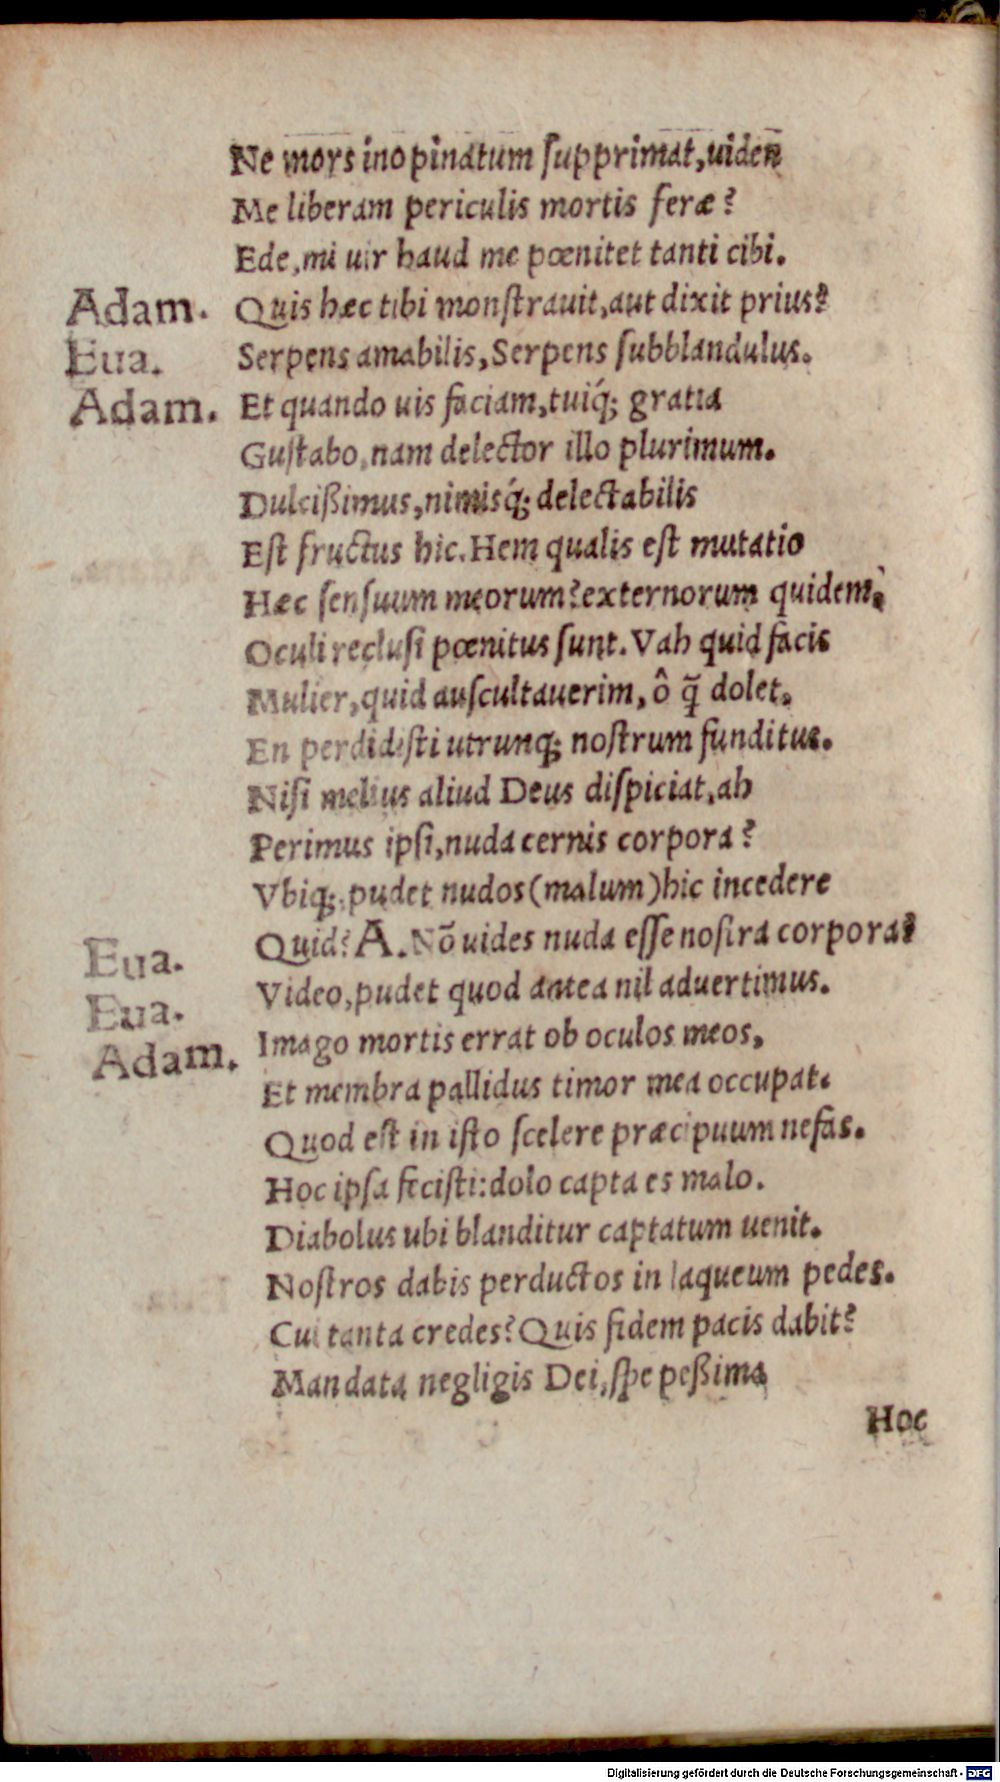 Ne mors inopinatum ſupprimat,uideñ
Me liberam periculis mortis feræ?
Ede,mi uir haud me pœnitet tanti cibi.
Adam. Quis hæc tibi monſtrauit,aut dixit prius?
Eua. Serpens amabilis,Serpens ſubblandulus.
Adam. Et quando uis faciam,tuiq́; gratia
Guſtabo,nam delector illo plurimum.
Dulcißimus,nimisq́; delectabilis
Eſt fructus hic.Hem qualis eſt mutatio
Hæc ſenſuum meorum?externorum quidem?
Oculi recluſi pœnitus ſunt.Vah quid facis
Mulier,quid auſcultauerim,ô q̃ dolet.
En perdidiſti utrunq; noſtrum funditus.
Niſi melius aliud Deus diſpiciat,ah
Perimus ipſi,nuda cernis corpora?
Vbiq;,pudet nudos(malum)hic incedere
Eua. Quid? A. Nõ uides nuda eſſe noſtra corpora?
Eua. Video,pudet quod antea nil aduertimus.
Adam. Imago mortis errat ob oculos meos,
Et membra pallidus timor mea occupat.
Quod eſt in iſto ſcelere præcipuum nefas.
Hoc ipſa feciſti:dolo capta es malo.
Diabolus ubi blanditur captatum uenit.
Noſtros dabis perductos in laqueum pedes.
Cui tanta credes?Quis fidem pacis dabit?
Mandata negligis Dei,ſpe peßima
Hoc
Digitalisierung gefördert durch die Deutsche Forschungsgemeinschaft - DFG